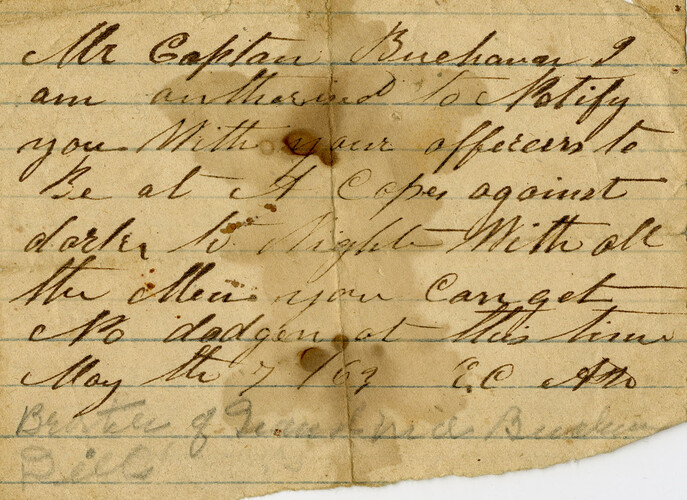 Mr Captan Buchanan I
am authorised to Notify
you With your officers to
Be at A Copes against
darke to Night With all
the Men you Can get
No dodgen at this time
May the 7 /63 E.C
of
Bill